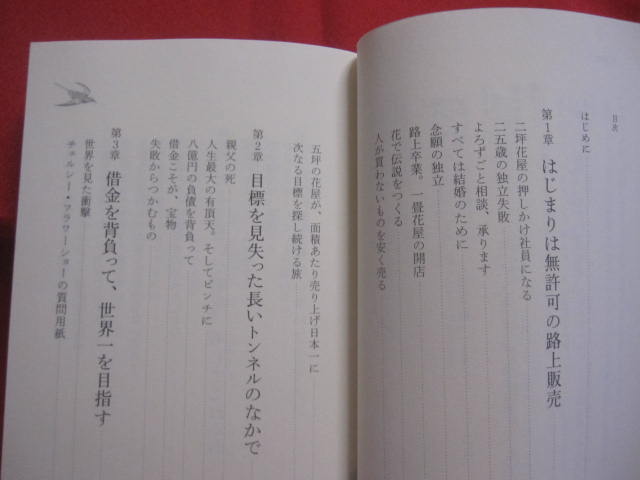 目次
はじめに
第1章　はじまりは無許可の路上販売
二坪花屋の押しかけ社員になる
二五歳の独立失敗
よろずごと相談、承ります
すべては結婚のために
念願の独立
路上卒業。一畳花屋の開店
花で伝説をつくる
人が買わないものを安く売る
五坪の花屋が、面積あたり売り上げ日本一に
次なる目標を探し続ける旅
第2章　目標を見失った長いトンネルのなかで
親父の死
人生最大の有頂天。そしてピンチに
八億円の負債を背負って
借金こそが、宝物
失敗からつかむもの
第3章　借金を背負って、世界一を目指す
世界を見た衝撃
チェルシー・フラワーショーの質問用紙